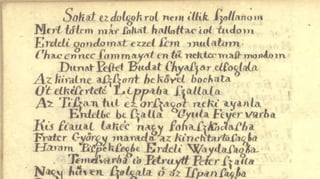 Sokat ez dolgokrol nem illik Szollanom
Mert tőlem már sokat hallottac iol tudom
Erdeli gondomat ezzel sem mulatom
Chac ennec summayat en tü nektec most mondom
Dunat Pestet Budat Chyaszar elfoglala
Az kiralne aszszont be kővel bochata
Ot elkesertete Lippaba szallata
Az Tiszan tul ez orszagot neki ayanla
Erdelbe be szalla Gyula Feyer varba
Kis fiaual lakec nagy fohaszkodasba
Frater György marada az kinchtartosagba
Harom Pispeksegbe Erdeli Waydasagba
Temesvarba io Petruytt Peter szalla
Nagy hüven szolgala ő az Ispansagba